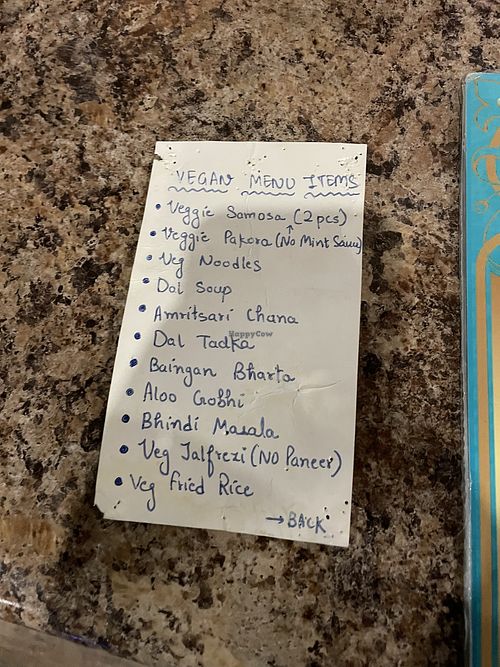 VEGAN MENU ITEMS
• Veggie Samosa (2 pcs)
• Veggie Pakora (↑No Mint Sauce)
• Veg Noodles
• Dal Soup
• Amritsari Chana
• Dal Tadka
HappyCow
• Baingan Bharta
• Aloo Gobhi
• Bhindi Masala
• Veg Jalfrezi (NO Paneer)
• Veg Fried Rice
→ BACK